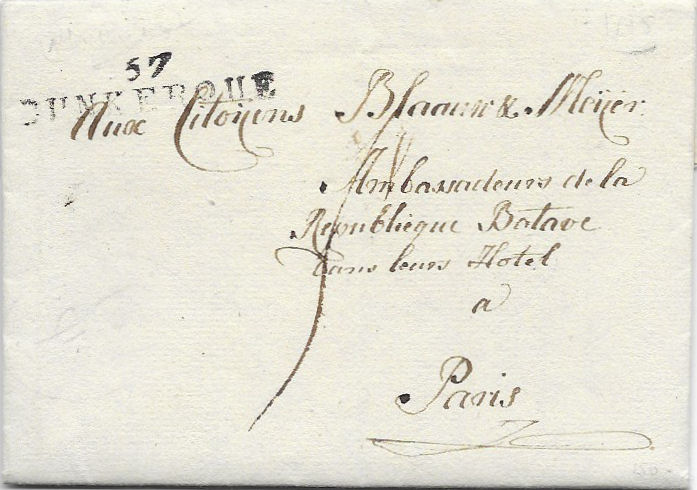 57
DUNKERQUE
Aux Citoyens Blaauw & Meÿer
Ambassadeurs de la
Republieque Batave
dans leurs Hotel
a
Paris